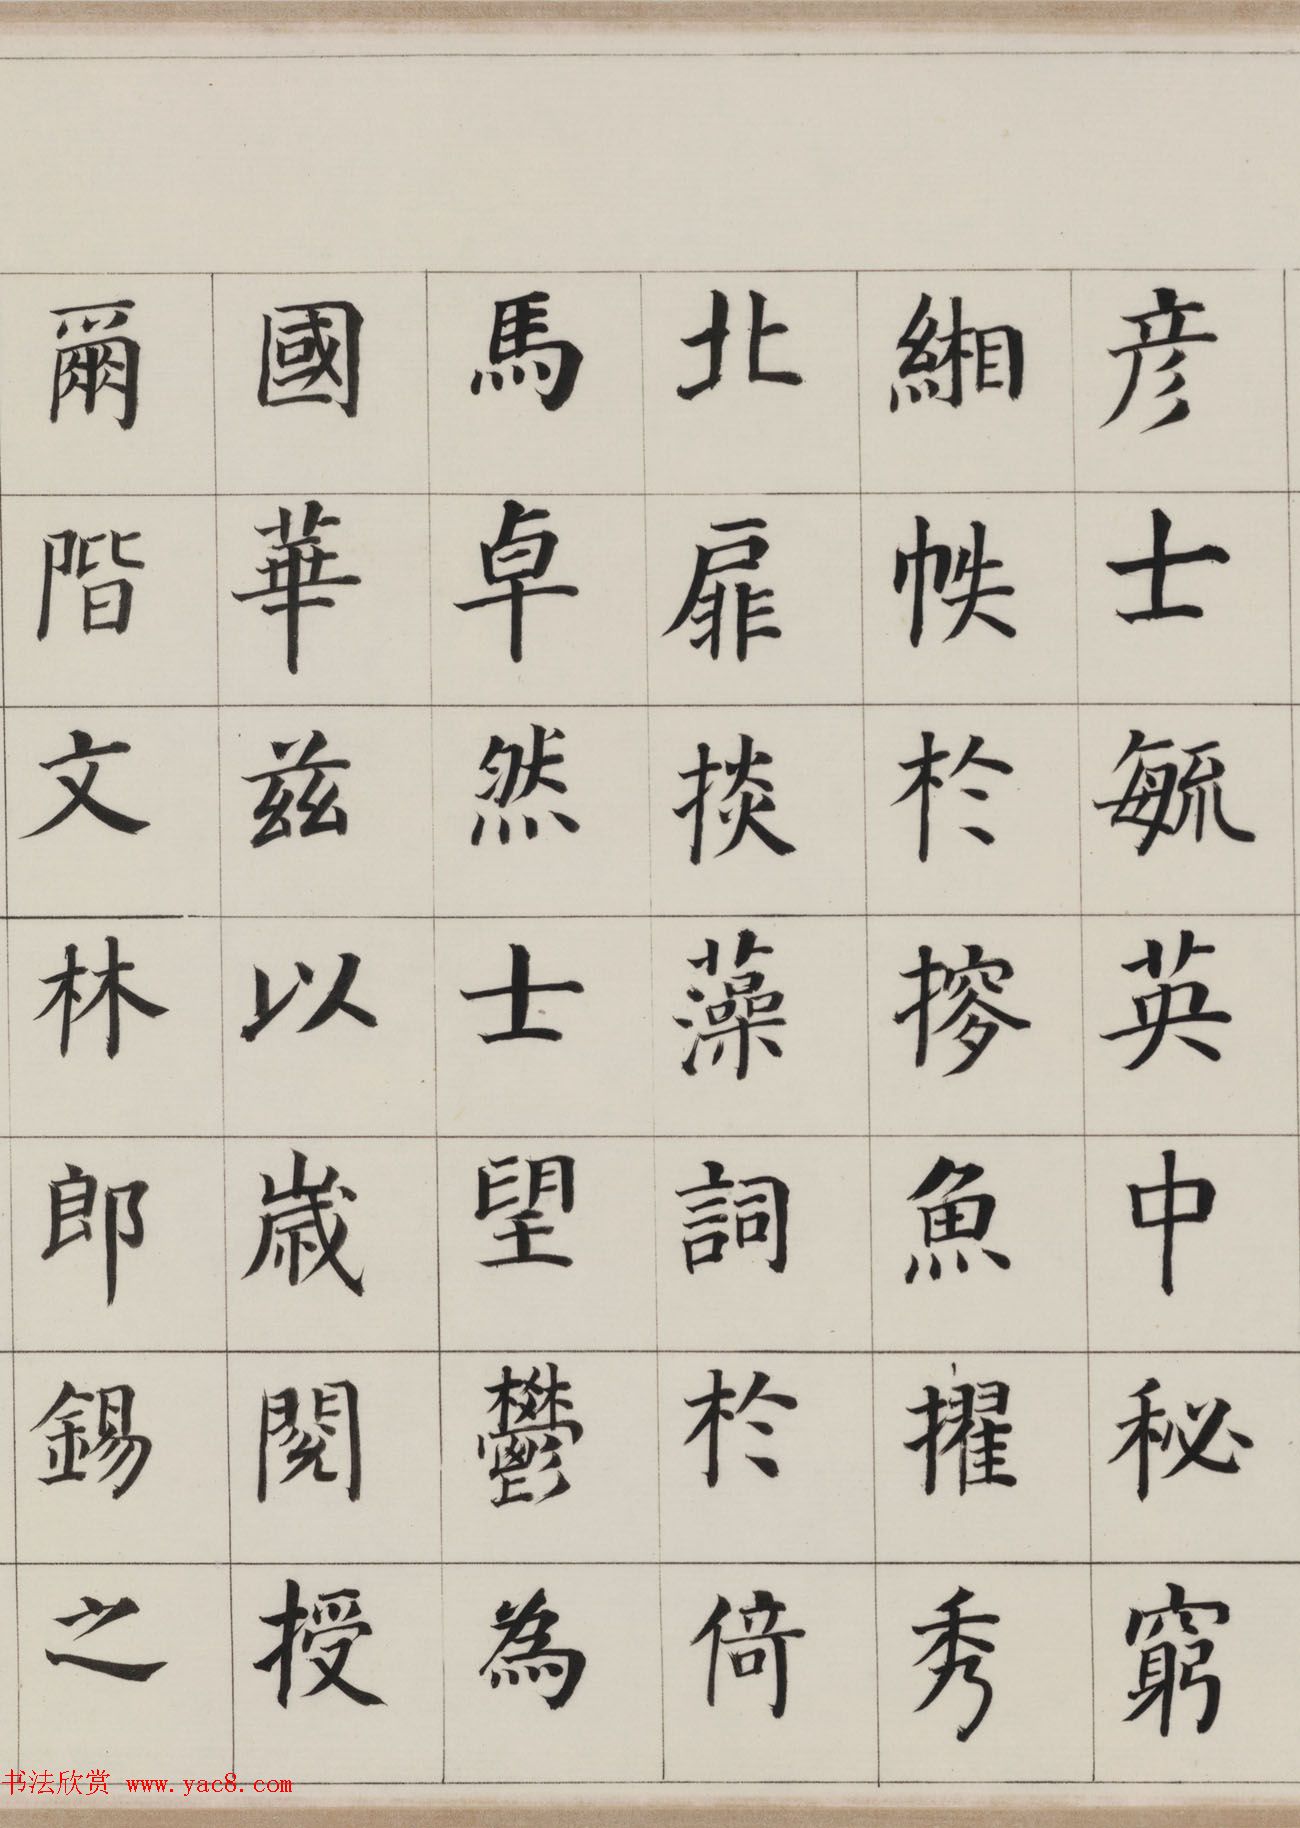 彦士毓英中秘窮
緗帙於摎魚擢秀
北扉掞藻詞於倚
馬卓然士望鬱為
國華兹以歲閱授
爾階文林郎錫之
书法欣赏 www.yac8.com